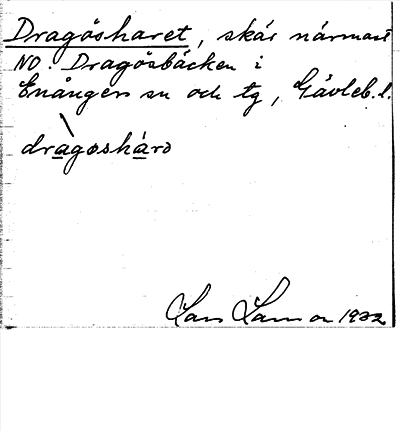 Dragösharet, skär närmast
NO. Dragösbäcken i
Enånger sn och tg, Gävleb. l.
dragoshárd
Lars 1932